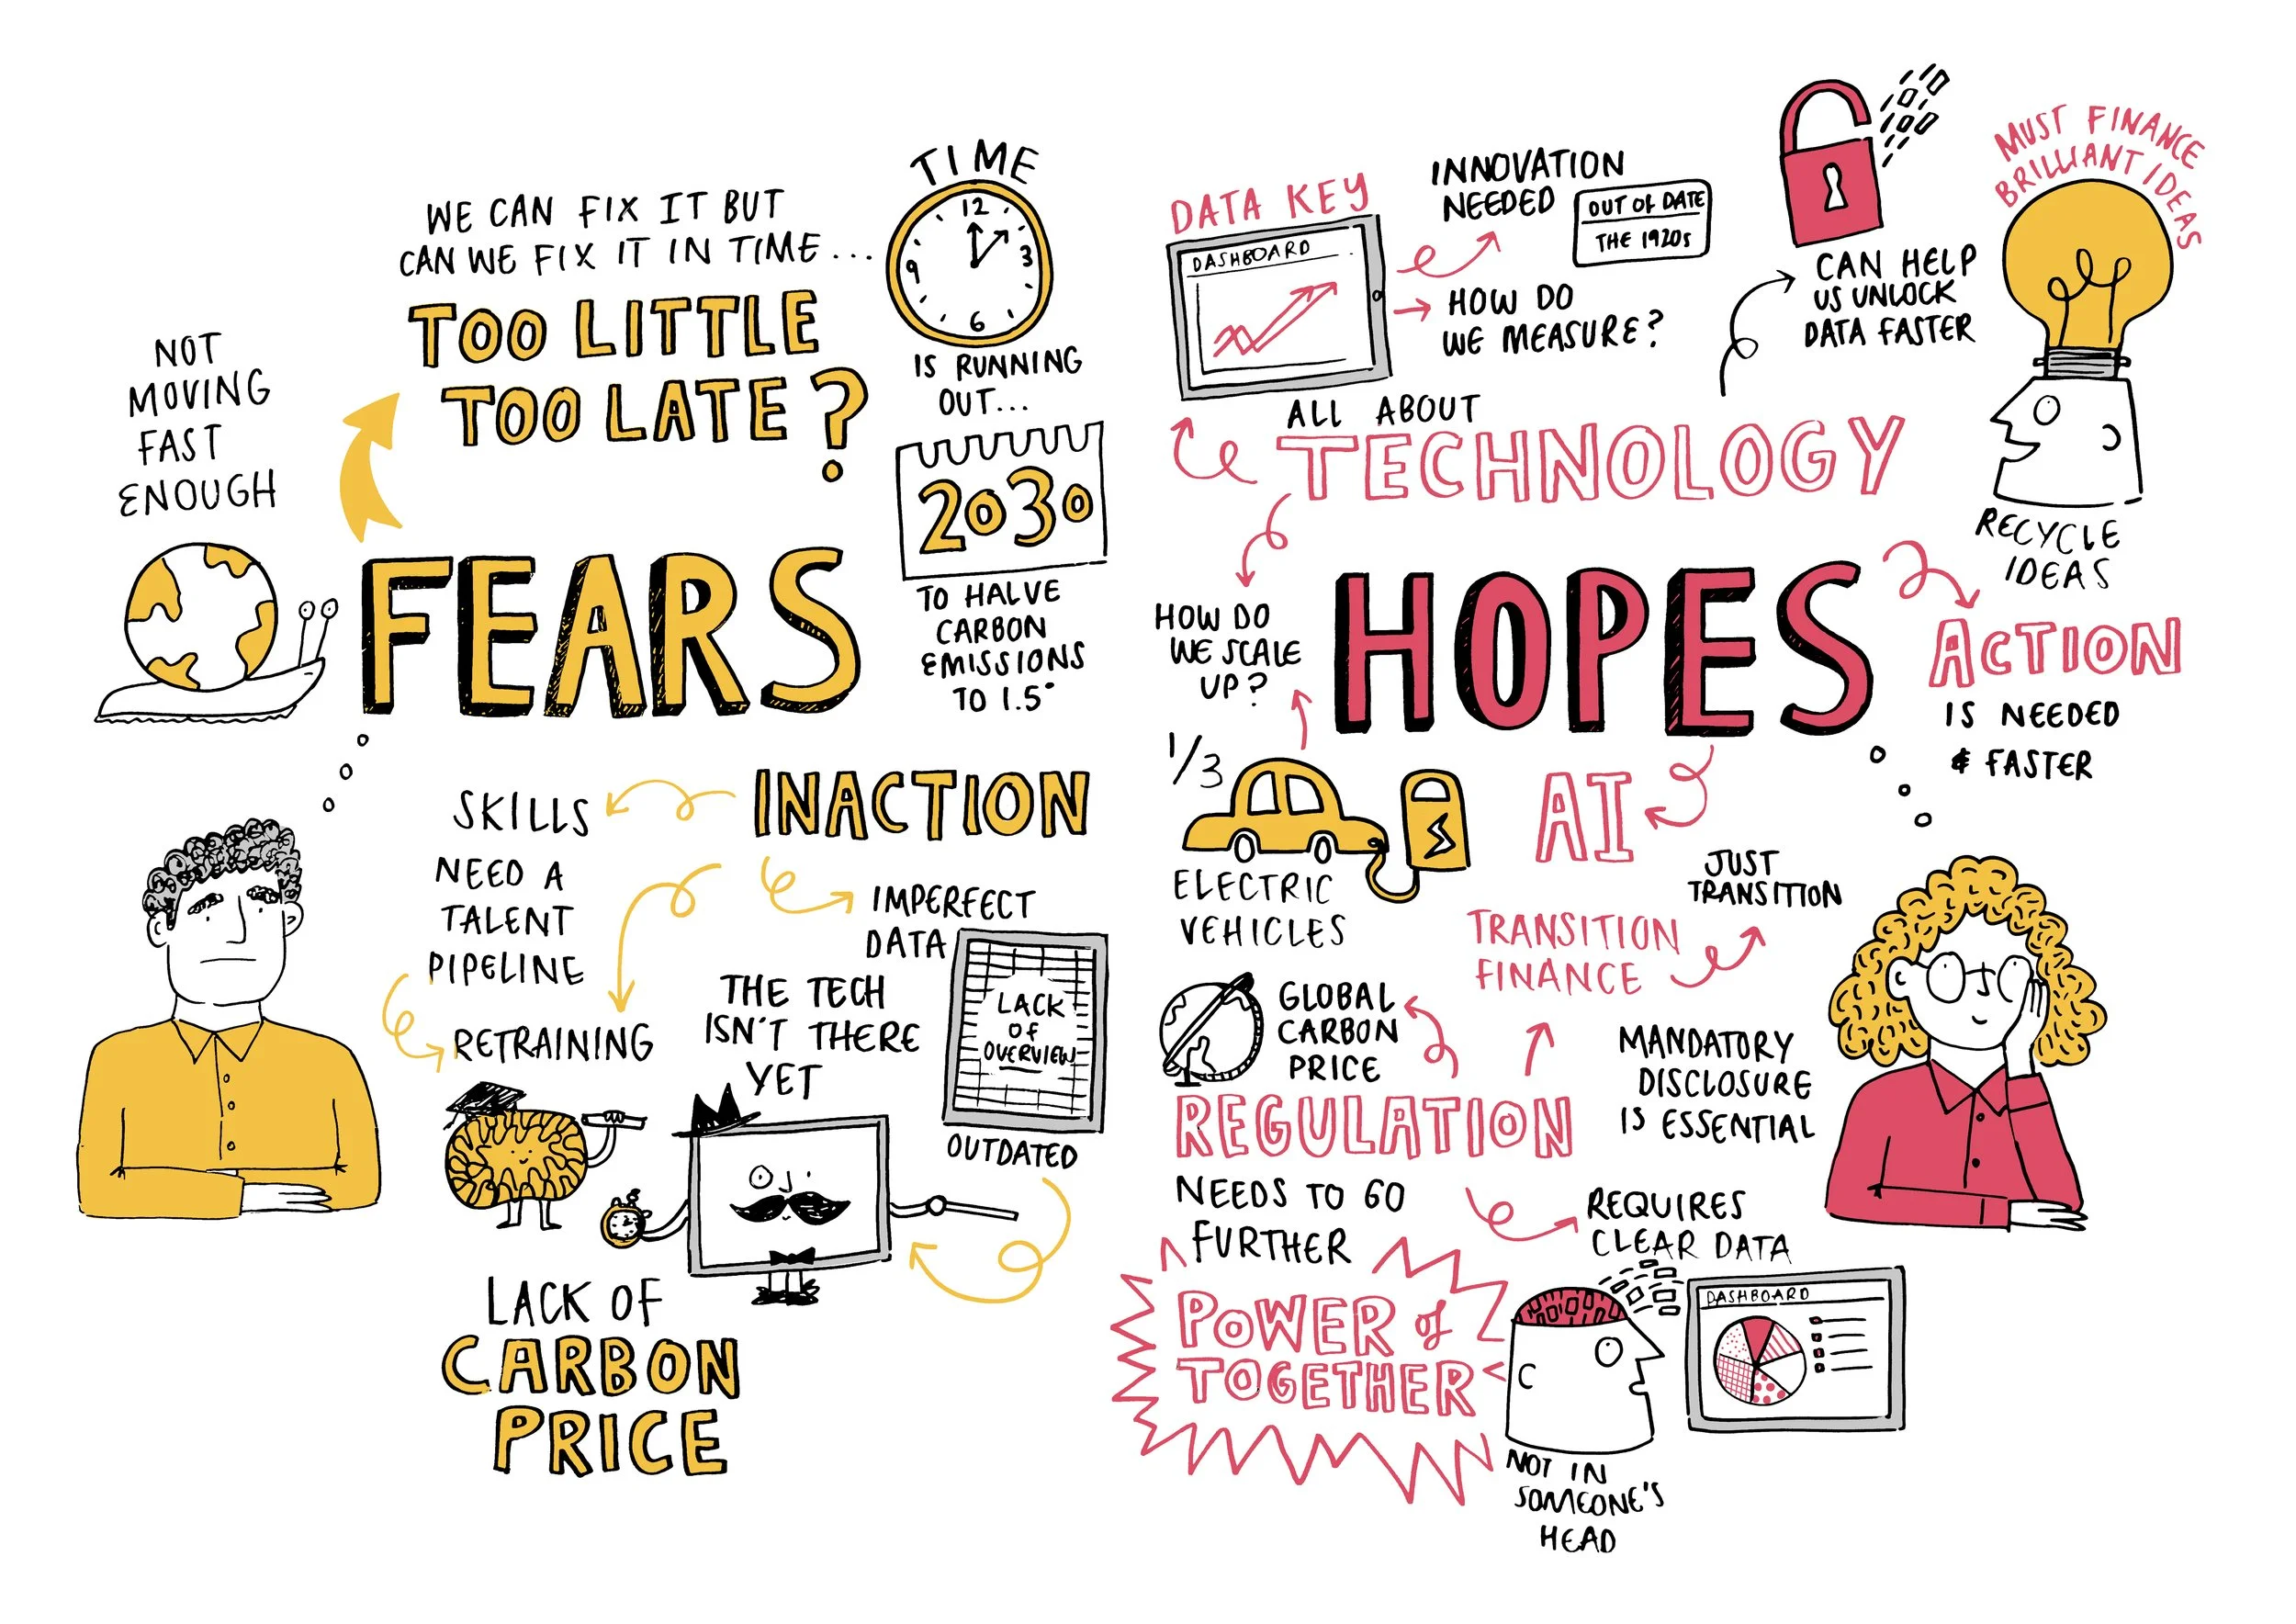 WE CAN FIX IT BUT
CAN WE FIX IT IN TIME...
TOO LITTLE
TOO LATE?
TIME
12
3
6
9
IS RUNNING
OUT...
2030
TO HALVE
CARBON
EMISSIONS
TO 1.5°
NOT
MOVING
FAST
ENOUGH
FEARS
INACTION
SKILLS
NEED A
TALENT
PIPELINE
RETRAINING
IMPERFECT
DATA
LACK
OF
OVERVIEW
OUTDATED
THE TECH
ISN'T THERE
YET
LACK OF
CARBON
PRICE
DATA KEY
DASHBOARD
INNOVATION
NEEDED
OUT OF DATE
THE 1920s
HOW DO
WE MEASURE?
CAN HELP
US UNLOCK
DATA FASTER
MUST FINANCE
BRILLIANT IDEAS
RECYCLE
IDEAS
ALL ABOUT
TECHNOLOGY
HOW DO
WE SCALE
UP?
HOPES
ACTION
IS NEEDED
& FASTER
1/3
ELECTRIC
VEHICLES
AI
JUST
TRANSITION
TRANSITION
FINANCE
GLOBAL
CARBON
PRICE
REGULATION
NEEDS TO GO
FURTHER
MANDATORY
DISCLOSURE
IS ESSENTIAL
REQUIRES
CLEAR DATA
DASHBOARD
POWER of
TOGETHER
NOT IN
SOMEONE'S
HEAD